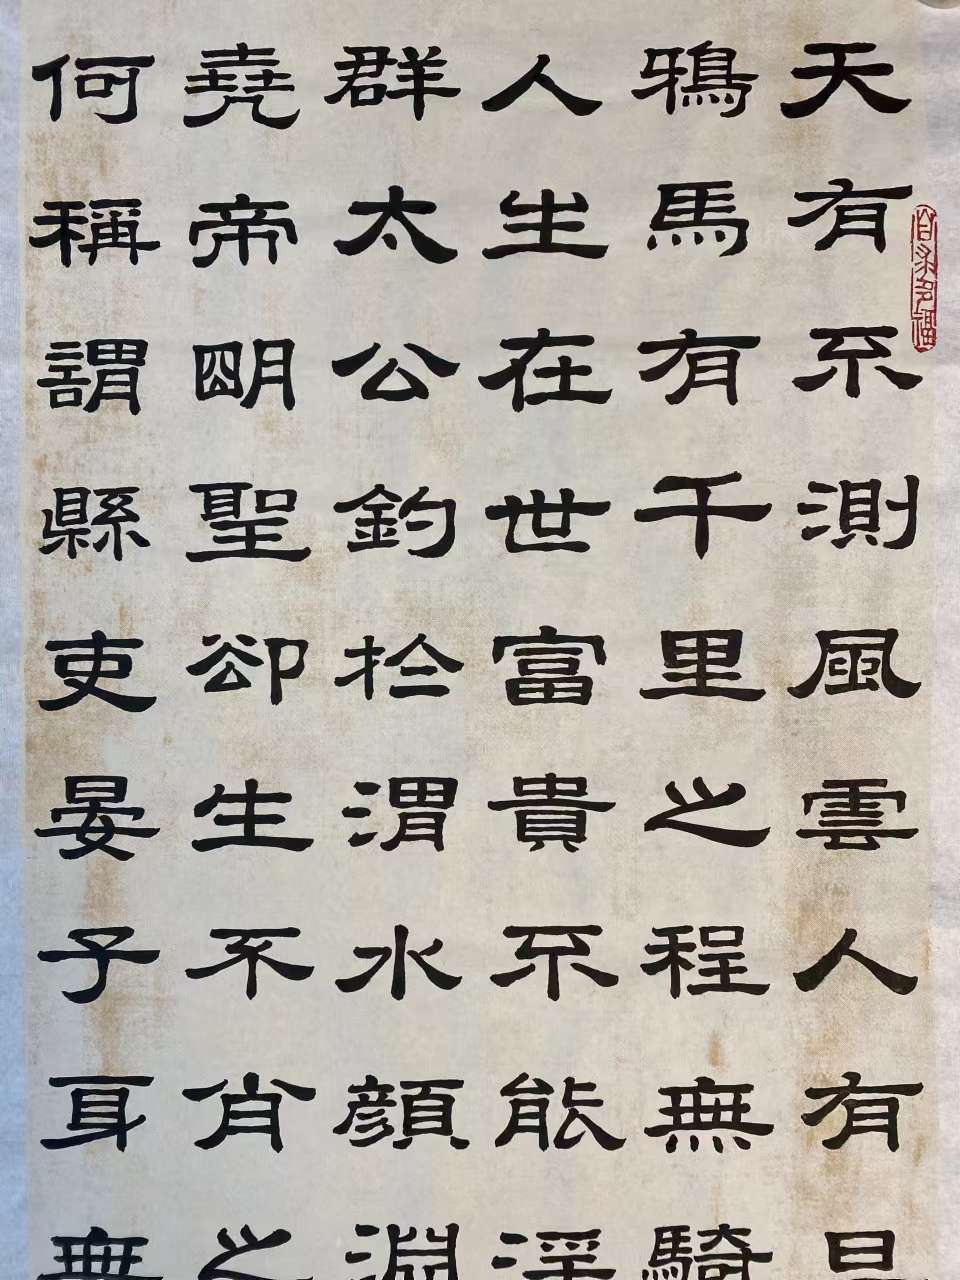 天有不測風雲人有旦
鴉馬有千里之程無騎
人生在世富貴不能淫
群太公釣於渭水顏淵
堯帝明聖卻生不肖之
何稱謂縣吏晏子身無
自求多福